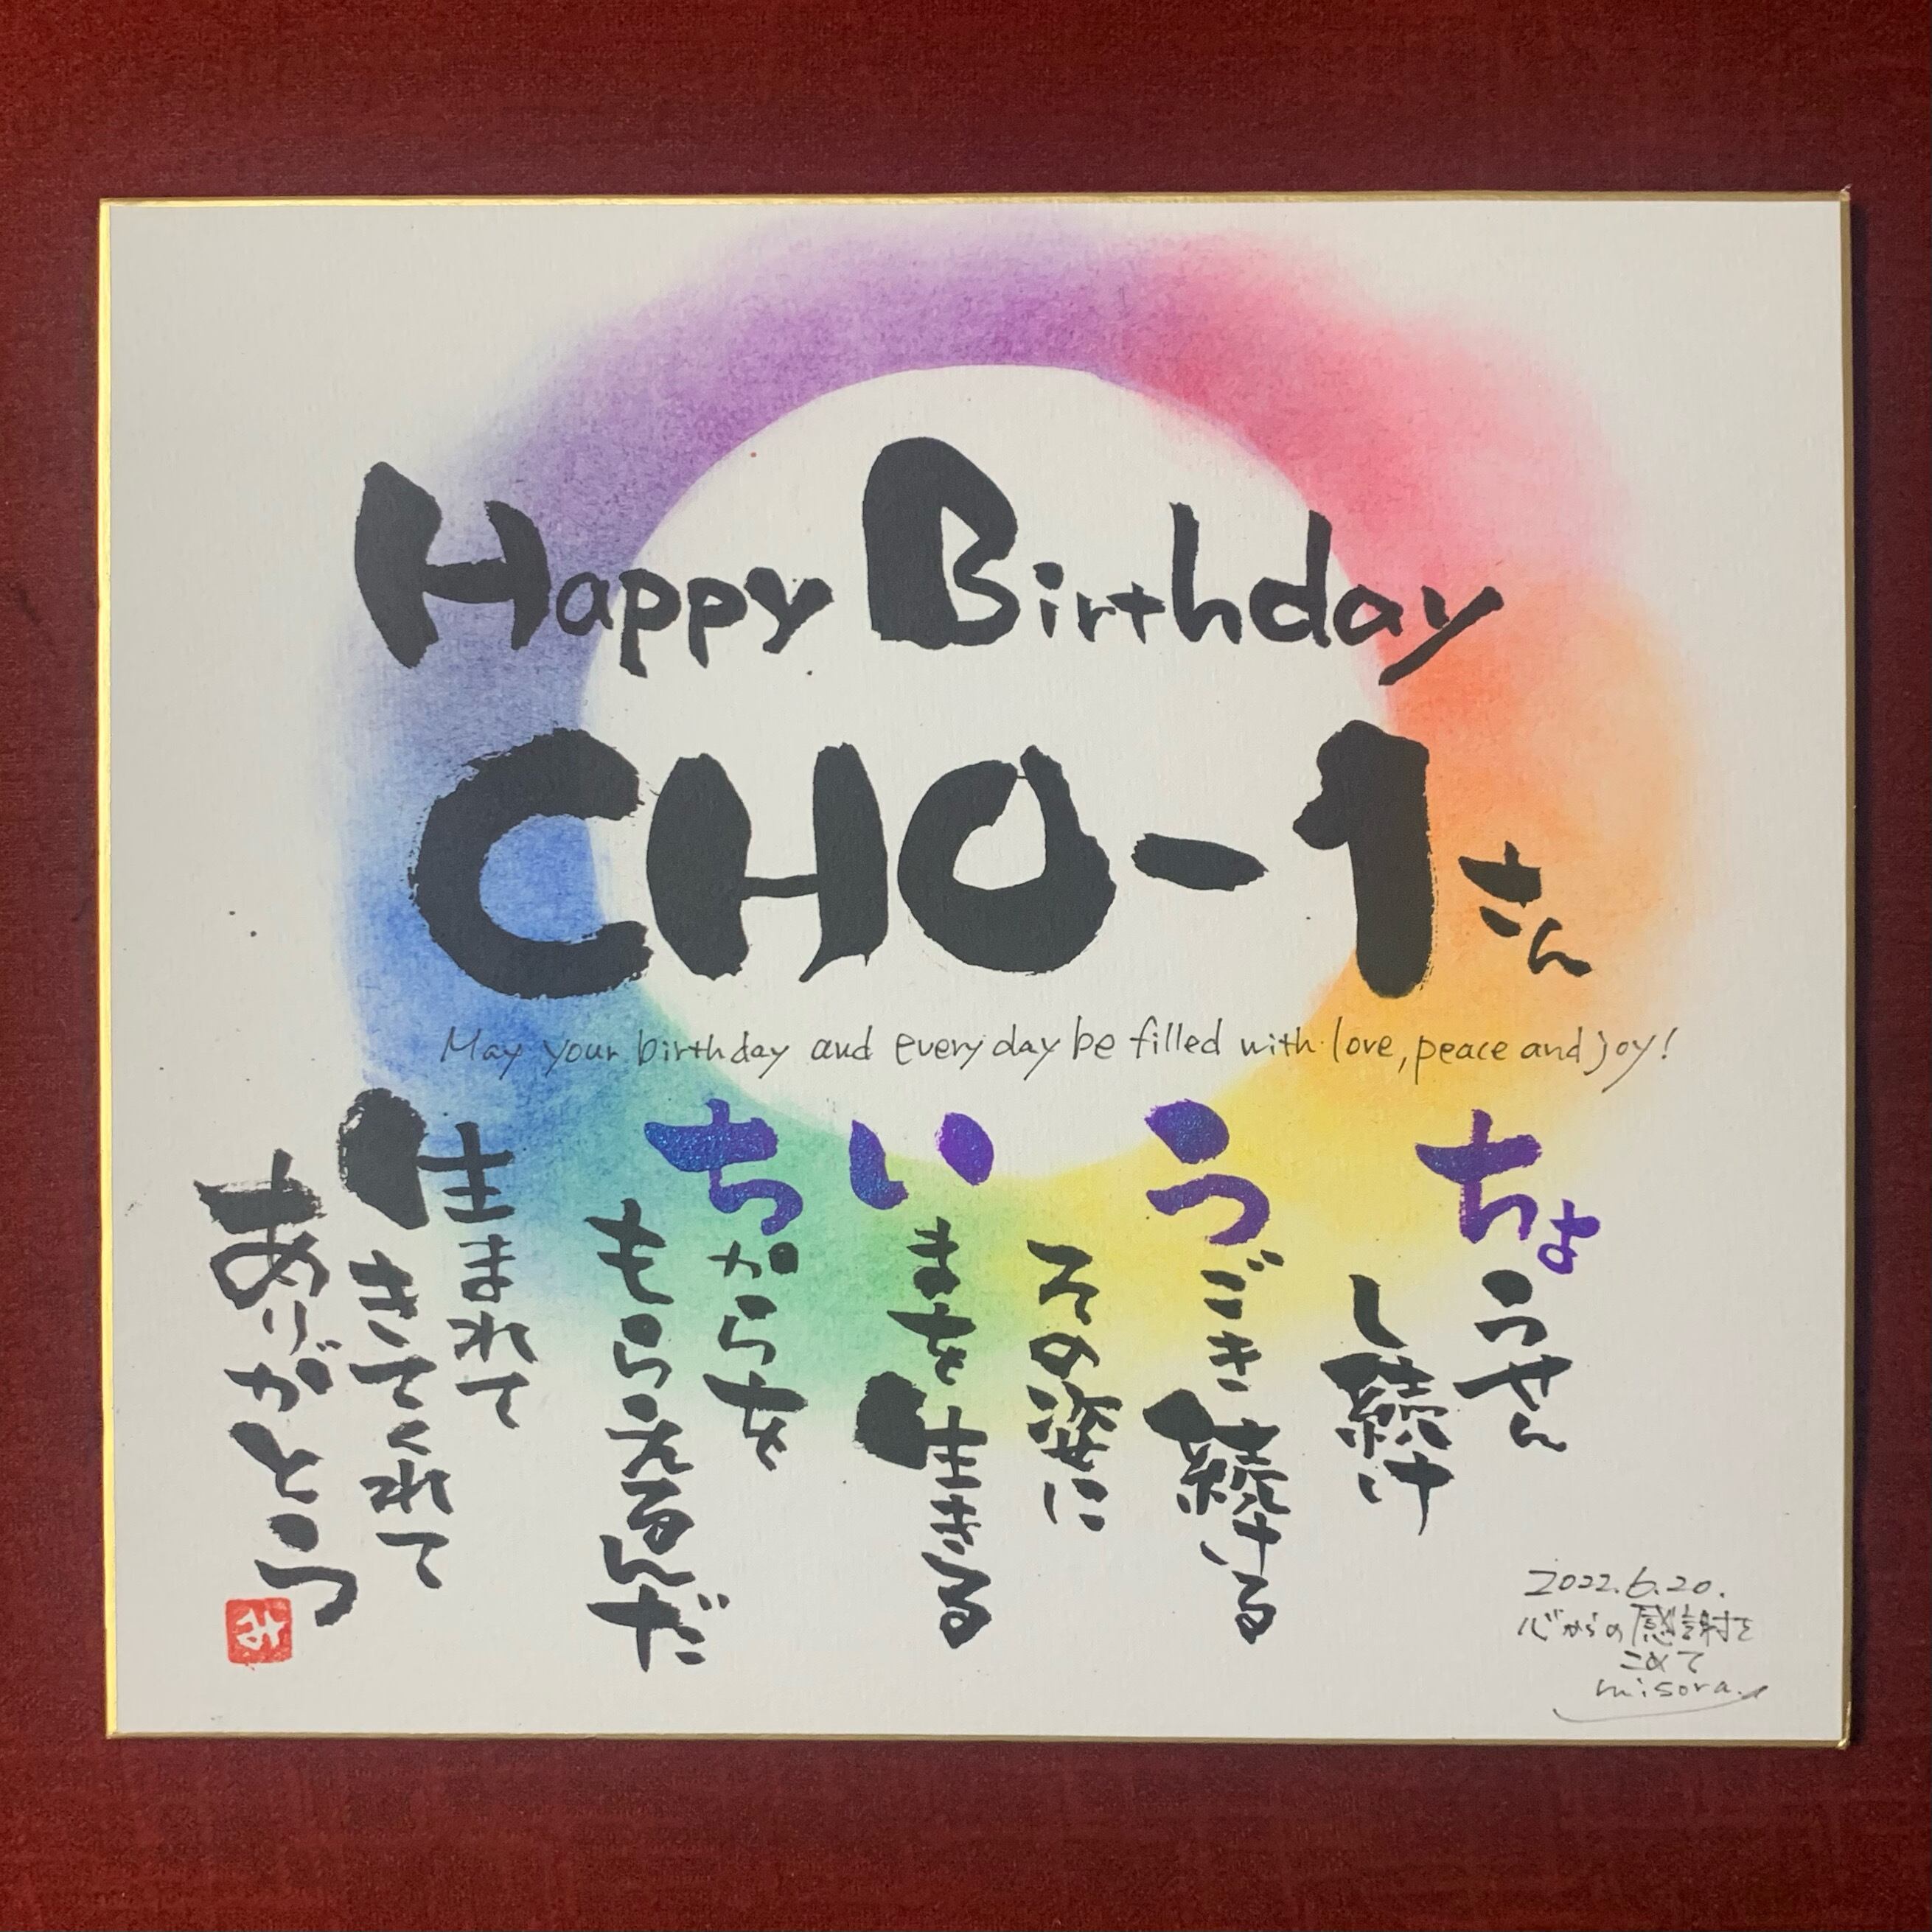 Happy Birthday
CHO-1さん
May your birthday and every day be filled with love, peace and joy!
ちょうせん
し続け
うごき続ける
その姿に
いまを生きる
ちからを
もらえるんだ
生まれて
生きてくれて
ありがとう
2022.6.20.
心からの感謝を
こめて
misora